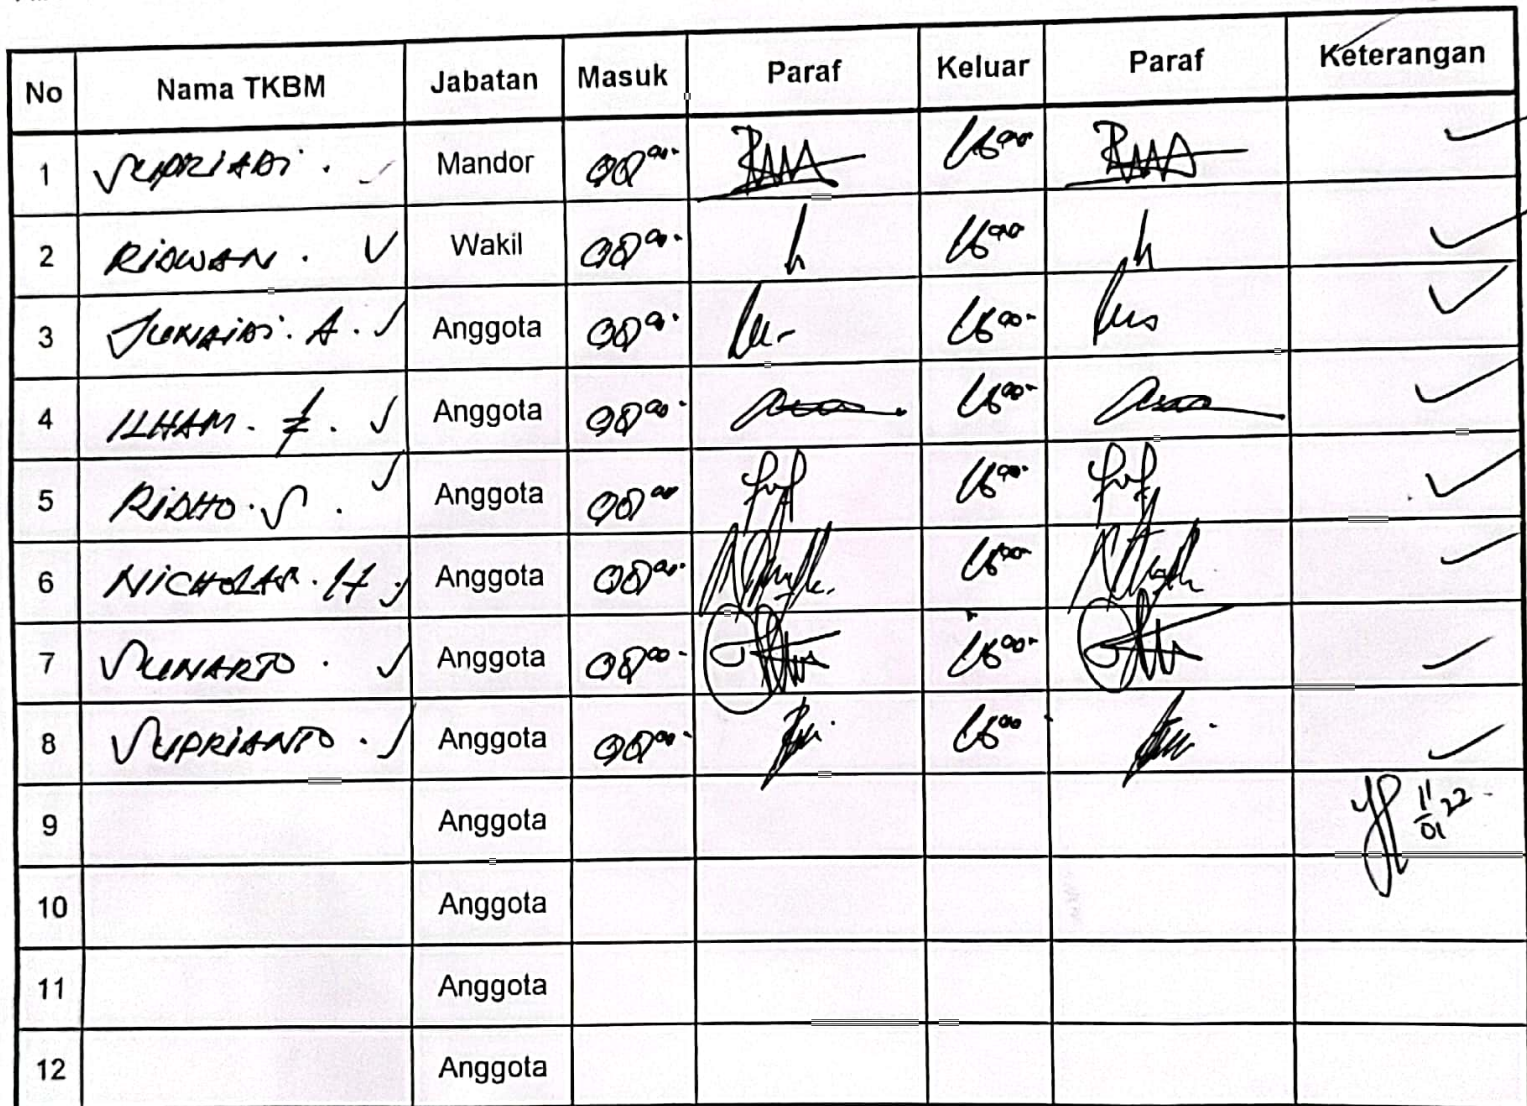 No Nama TKBM Jabatan Masuk Paraf Keluar Paraf Keterangan
1 SUPRIADI . ✓ Mandor 08⁰⁰· 16⁰⁰ ✓
2 RIDWAN . ✓ Wakil 08⁰⁰· 16⁰⁰ ✓
3 JUNAIDI . A . ✓ Anggota 08⁰⁰· 16⁰⁰· ✓
4 ILHAM . Z . ✓ Anggota 08⁰⁰· 16⁰⁰· ✓
5 RIDHO . S . ✓ Anggota 08⁰⁰ 16⁰⁰· ✓
6 NICHOLAS . H . ✓ Anggota 08⁰⁰· 16⁰⁰· ✓
7 SUNARTO . ✓ Anggota 08⁰⁰· 16⁰⁰· ✓
8 SUPRIANTO . ✓ Anggota 08⁰⁰· 16⁰⁰ ✓
9 Anggota 11/01 22
10 Anggota
11 Anggota
12 Anggota